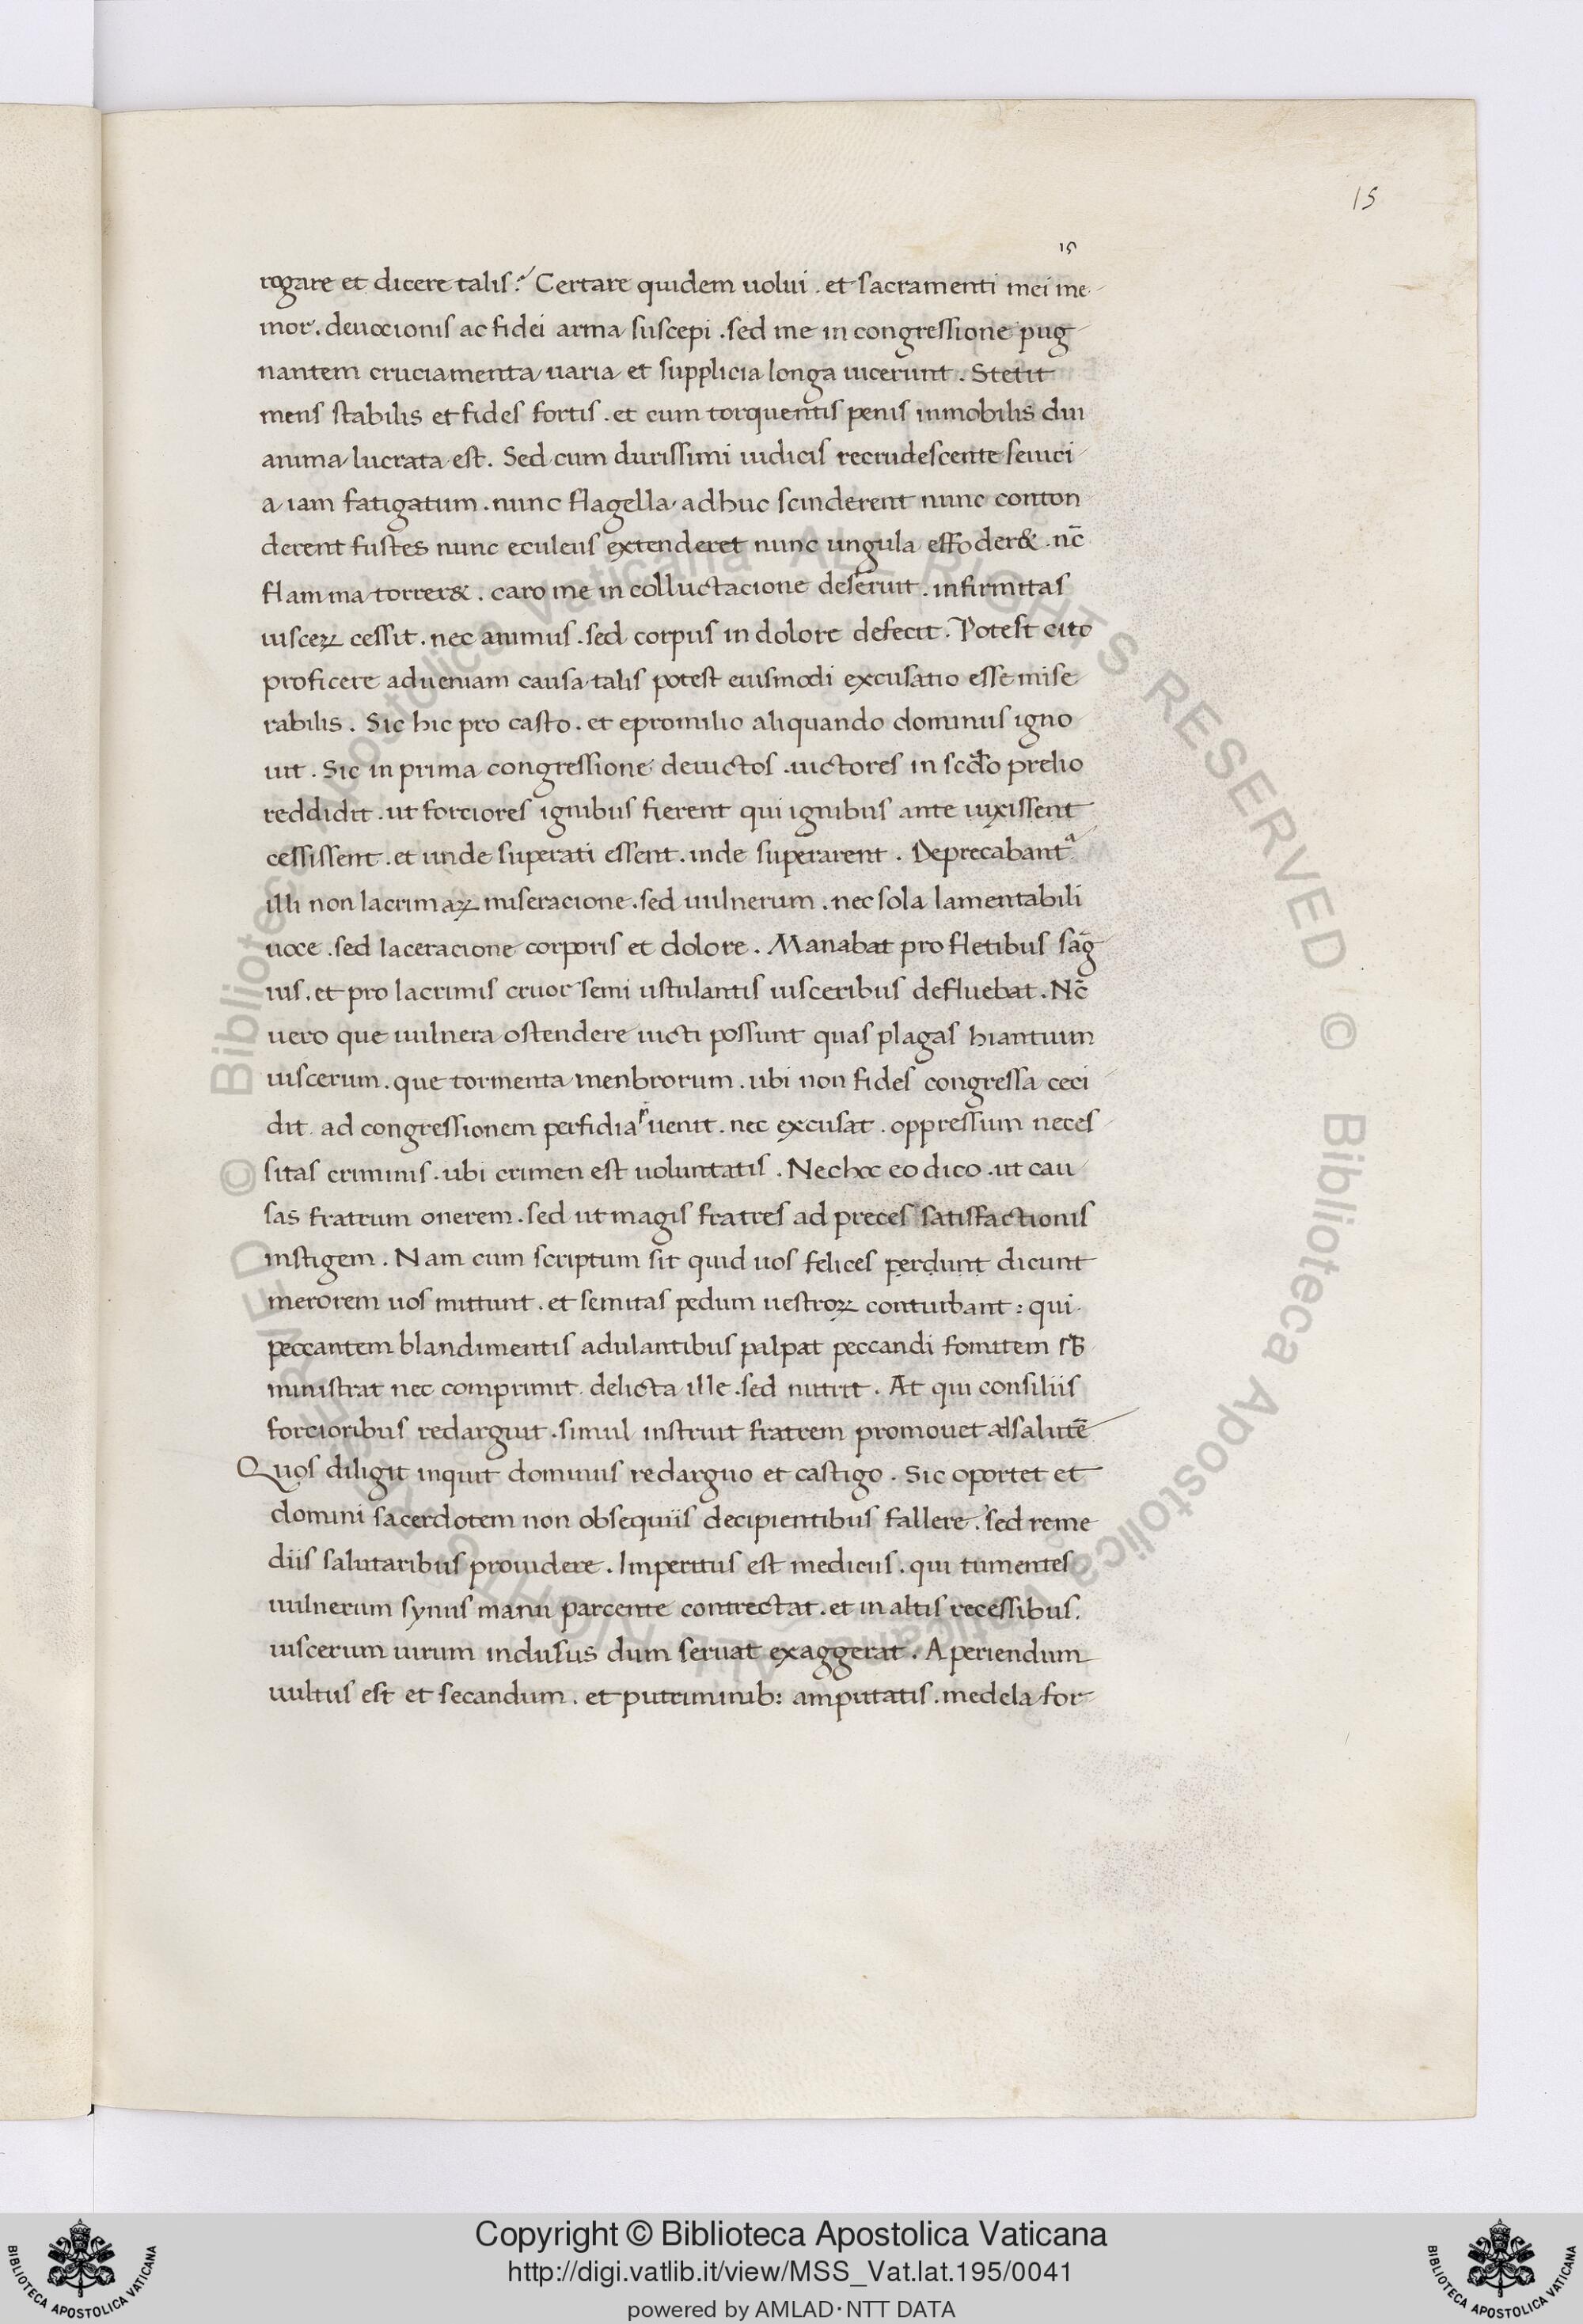 15
15
rogare et dicere talis? Certare quidem uolui . et sacramenti mei me
mor . deuocionis ac fidei arma suscepi . sed me in congressione pug
nantem cruciamenta uaria et supplicia longa uicerunt . Stetit
mens stabilis et fides fortis . et cum torquentis penis inmobilis diu
anima luctata est . Sed cum durissimi iudicis recrudescente seuici
a iam fatigatum . nunc flagella adhuc scinderent nunc conton
derent fustes nunc eculeus extenderet nunc ungula effoder& . nc̄
flamma torrer& . caro me in colluctacione deseruit . infirmitas
uisceꝝ cessit . nec animus . sed corpus in dolore defecit . Potest cito
proficere adueniam causa talis potest eiusmodi excusatio esse mise
rabilis . Sic hic pro casto . et epromilio aliquando dominus igno
uit . Sic in prima congressione deuictos . uictores in scd̄o prelio
reddidit . ut forciores ignibus fierent qui ignibus ante uixissent
cessissent . et unde superati essent . inde superarent . Deprecabant
illi non lacrimaꝝ miseracione . sed uulnerum . nec sola lamentabili
uoce . sed laceracione corporis et dolore . Manabat pro fletibus sāg
uis . et pro lacrimis cruor semi ustulantis uisceribus defluebat . Nc̄
uero que uulnera ostendere uicti possunt quas plagas hiantium
uiscerum . que tormenta menbrorum . ubi non fides congressa ceci
dit ad congressionem perfidia uenit . nec excusat . oppressum neces
sitas criminis . ubi crimen est uoluntatis . Nec hoc eo dico . ut cau
sas fratrum onerem . sed ut magis fratres ad preces satisfactionis
instigem . Nam cum scriptum sit quid uos felices perdunt dicunt
merorem uos mittunt . et semitas pedum uestroꝝ conturbant : qui
peccantem blandimentis adulantibus palpat peccandi fomitem sb̄
ministrat nec comprimit delicta ille . sed nutrit . At qui consiliis
forcioribus redarguit . simul instruit fratrem promouet ad salutē
Quos diligit inquit dominus redarguo et castigo . Sic oportet et
domini sacerdotem non obsequiis decipientibus fallere . sed reme
diis salutaribus prouidere . Imperitus est medicus . qui tumentes
uulnerum synus manu parcente contrectat . et in altis recessibus .
uiscerum uirum indusus dum seruat exaggerat . Aperiendum
uultus est et secandum . et putriminib: amputatis . medela for
© Biblioteca Apostolica Vaticana ALL RIGHTS RESERVED
© Biblioteca Apostolica Vaticana ALL RIGHTS RESERVED
Copyright © Biblioteca Apostolica Vaticana
http://digi.vatlib.it/view/MSS_Vat.lat.195/0041
powered by AMLAD·NTT DATA
BIBLIOTECA APOSTOLICA VATICANA
BIBLIOTECA APOSTOLICA VATICANA